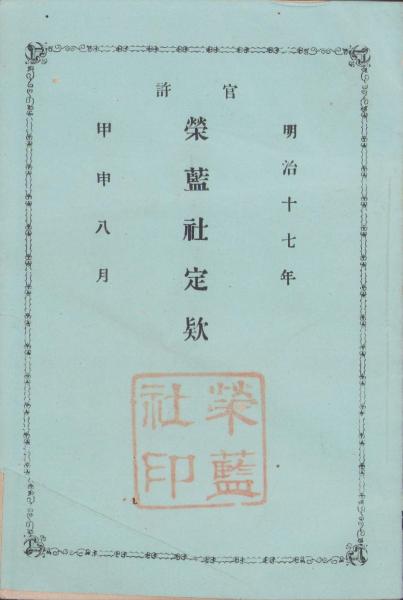 官許
明治十七年
榮藍社定欵
甲申八月
榮藍
社印